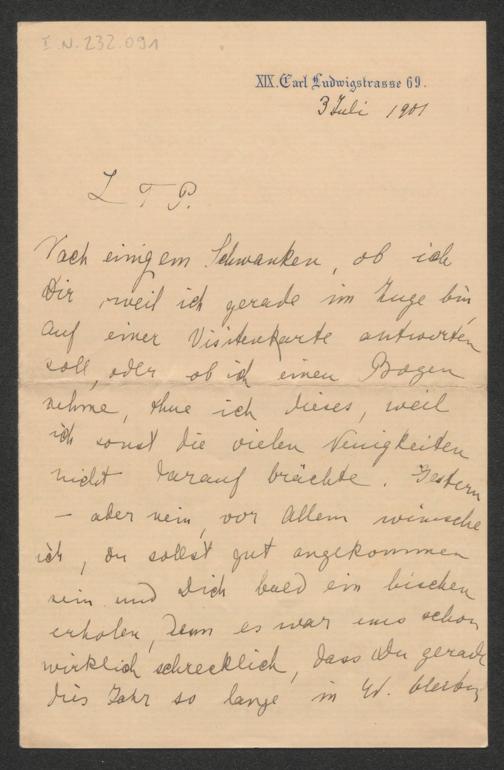 I.N. 232.091
XIX. Carl Ludwigstrasse 69.
3 Juli 1901
L T P.
Nach einigem Schwanken, ob ich
Dir, weil ich gerade im Zuge bin,
auf einer Visitenkarte antworten
soll, oder ob ich einen Bogen
nehme, thue ich dieses, weil
ich sonst die vielen Neuigkeiten
nicht darauf brächte. Gestern
– aber nein, vor Allem wünsche
ich, du sollst gut angekommen
sein und Dich bald ein bischen
erholen, denn es war uns schon
wirklich schrecklich, dass Du gerade
dies Jahr so lange in W. bleiben